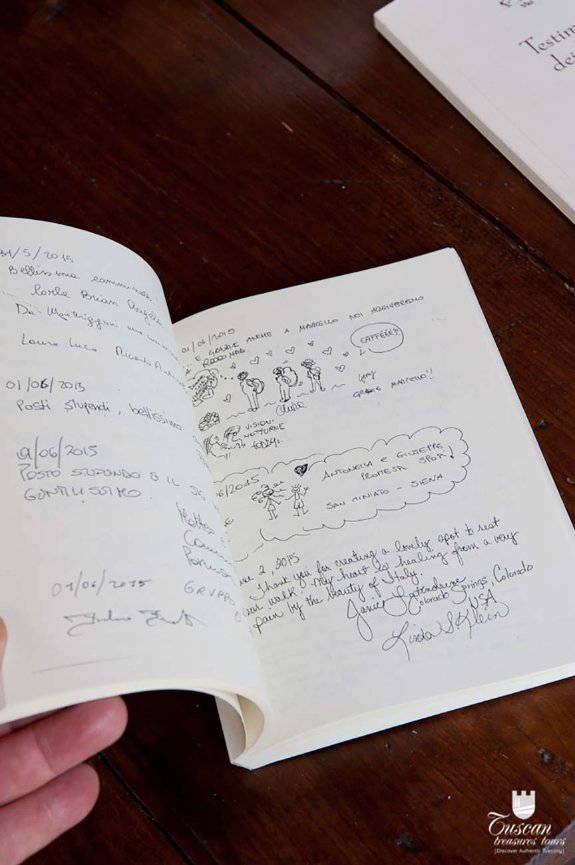 Testim
de
31/5/2015
Bellissima camminata
Carla Brian Angela
Da Monteriggioni una
Laura Lucia Ricardo
01/06/2015
Posti stupendi, bellissimo
1/06/2015
POSTO STUPENDO E IL
GENTILISSIMO.
Matteo
GRUPPO
01/06/2015
01/06/2015
E GRAZIE ANCHE A MARCELLO NOI
CAFFÈÈÈ!!
GRAZIE MARCELLO!!
VISIONI
NOTTURNE
TODAY.
6/2015
ANTONELLA E GIUSEPPE
PROMESSI SPOSI!
SAN MINIATO - SIENA
ne 2, 2015
Thank you for creating a lovely spot to rest
our walk. My heart is healing from a very
pain by the beauty of Italy.
Colorado Springs, Colorado
USA
Linda S Klein
Tuscan
treasures tours
|Discover Authentic Tuscany|